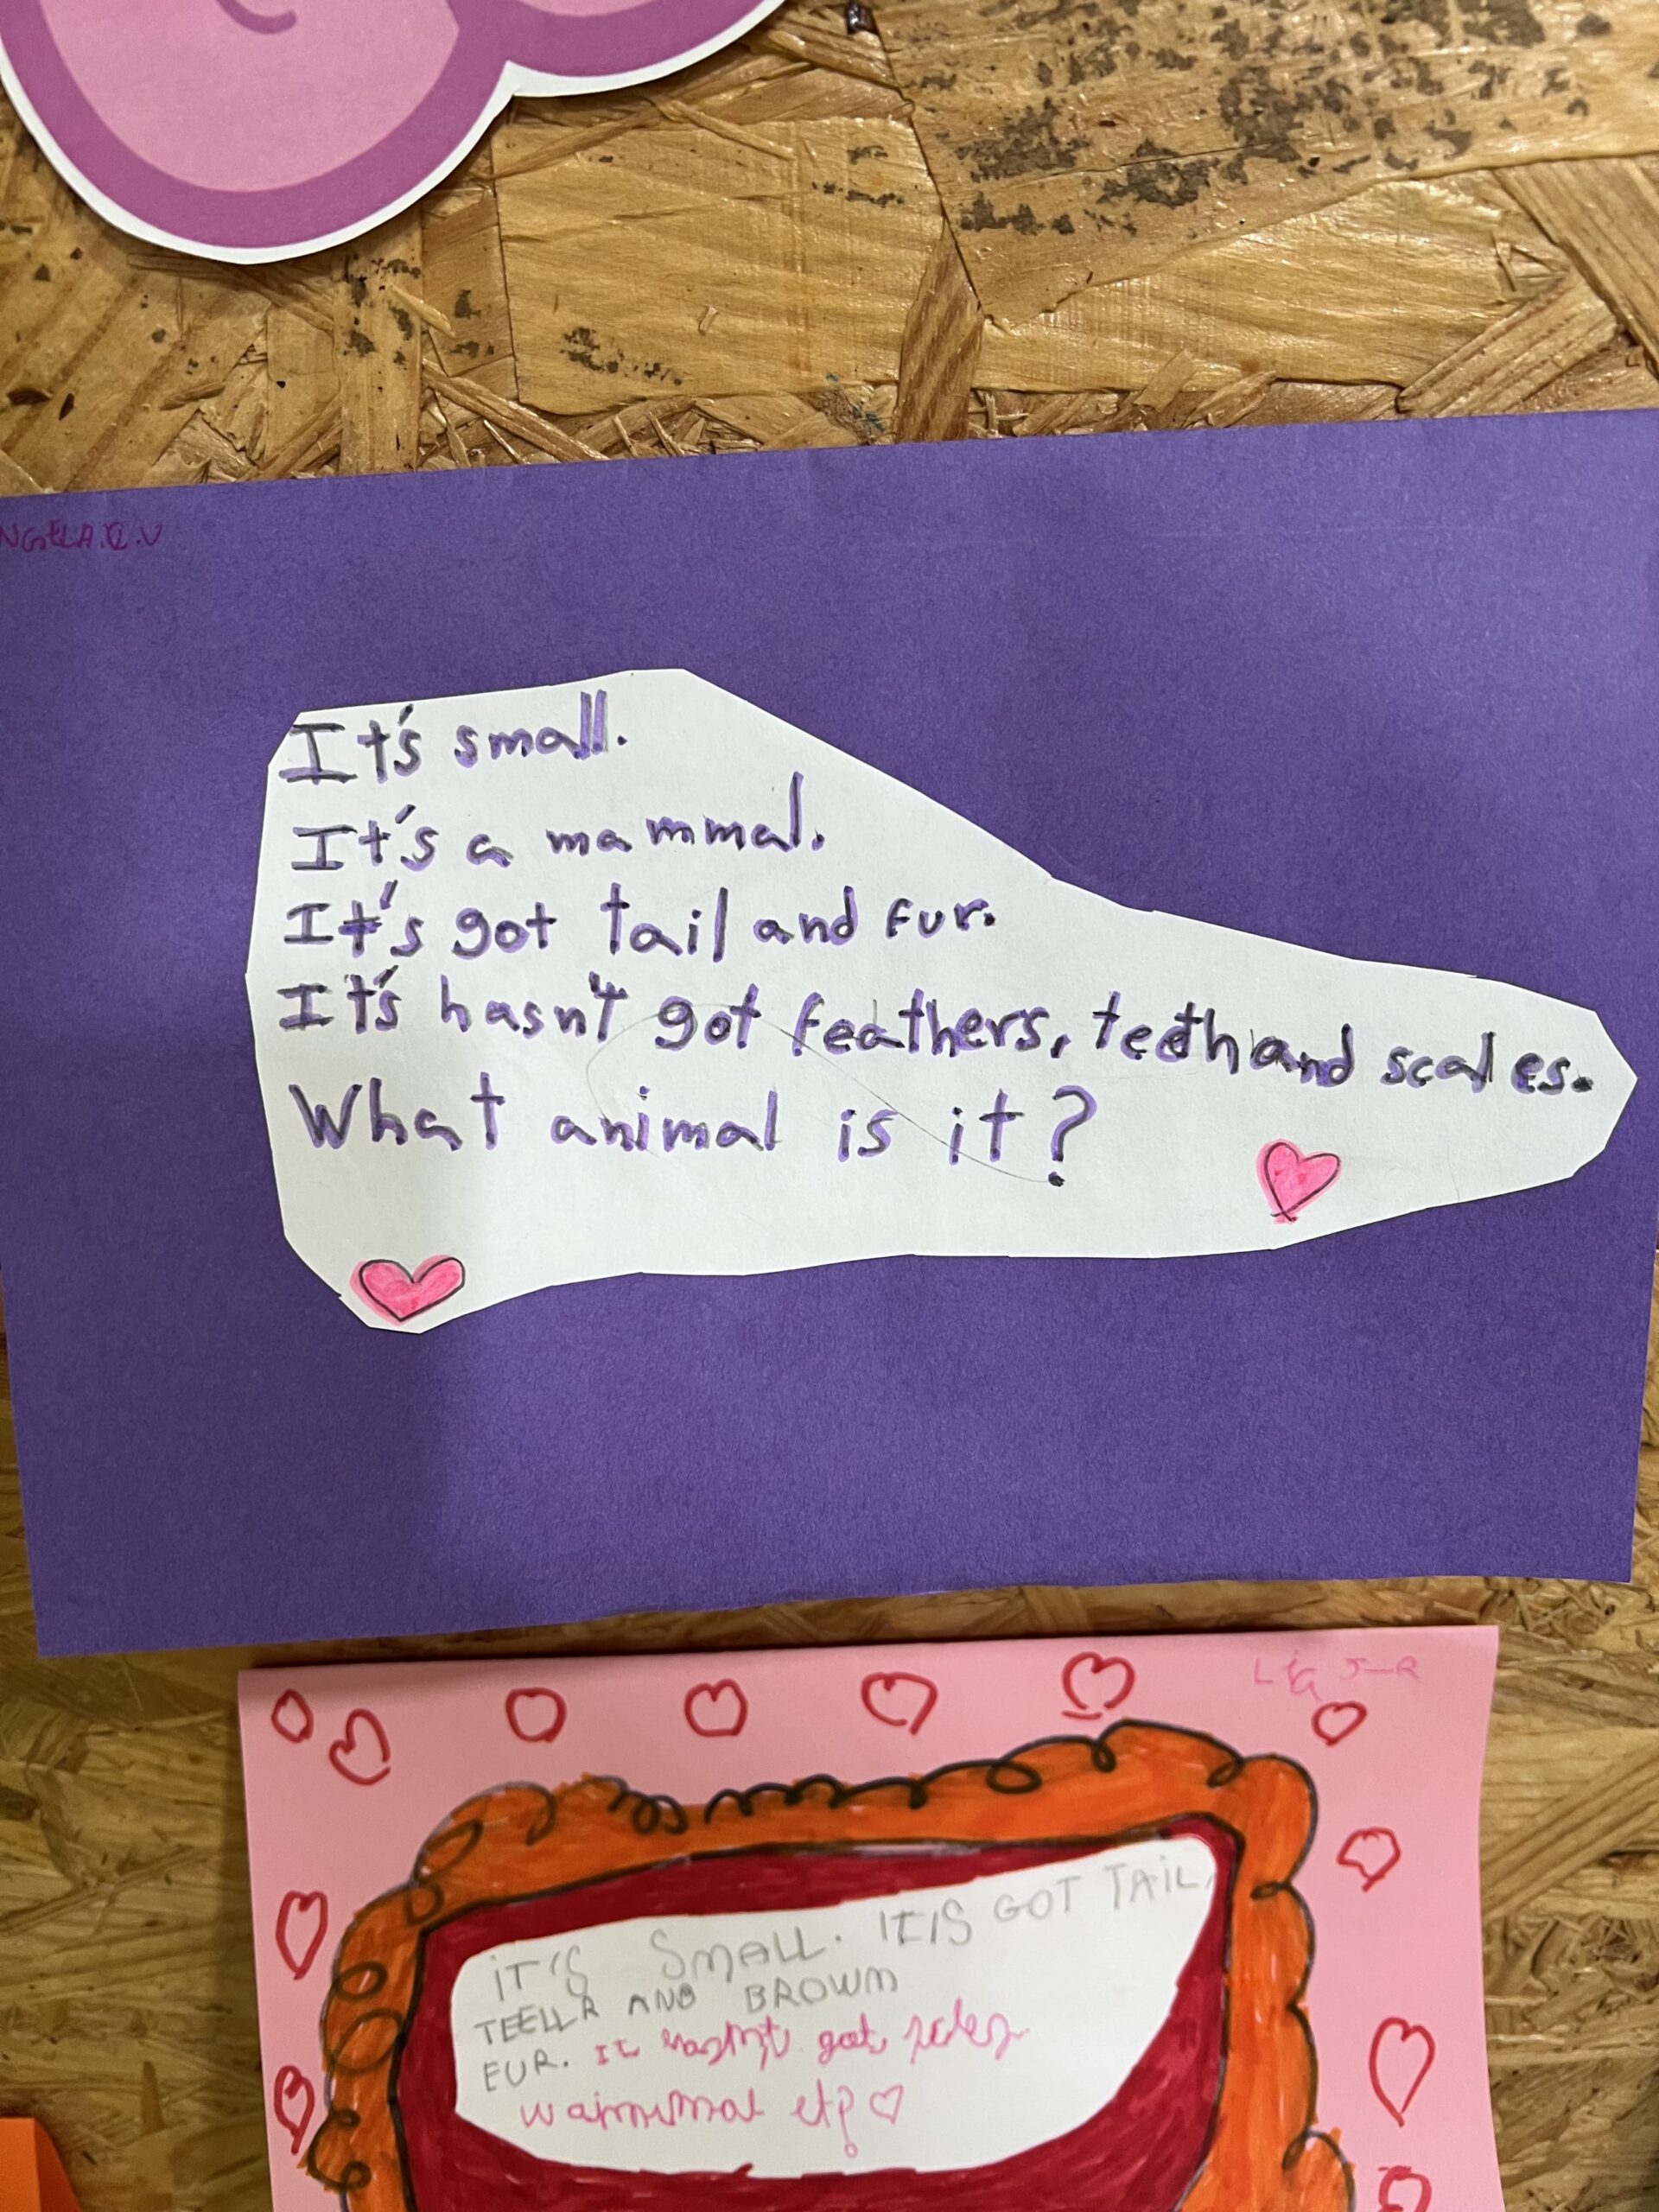 NGELA.Q.V
It's small.
It's a mammal.
It's got tail and fur.
It's hasn't got feathers, teeth and scales.
What animal is it?
IT'S SMALL. IT IS GOT TAIL,
AND BROWN
FUR. It hasn't got